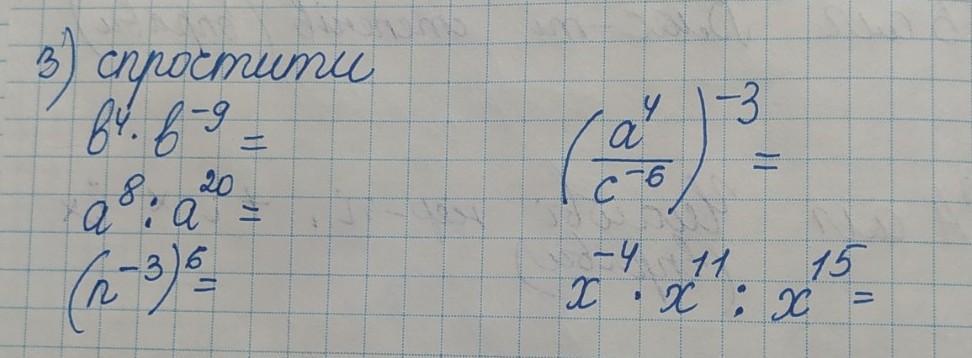 3) спростити
b⁴ · b⁻⁹ =
a⁸ : a²⁰ =
(n⁻³)⁶ =
(a⁴/c⁻⁶)⁻³ =
x⁻⁴ · x¹¹ : x¹⁵ =